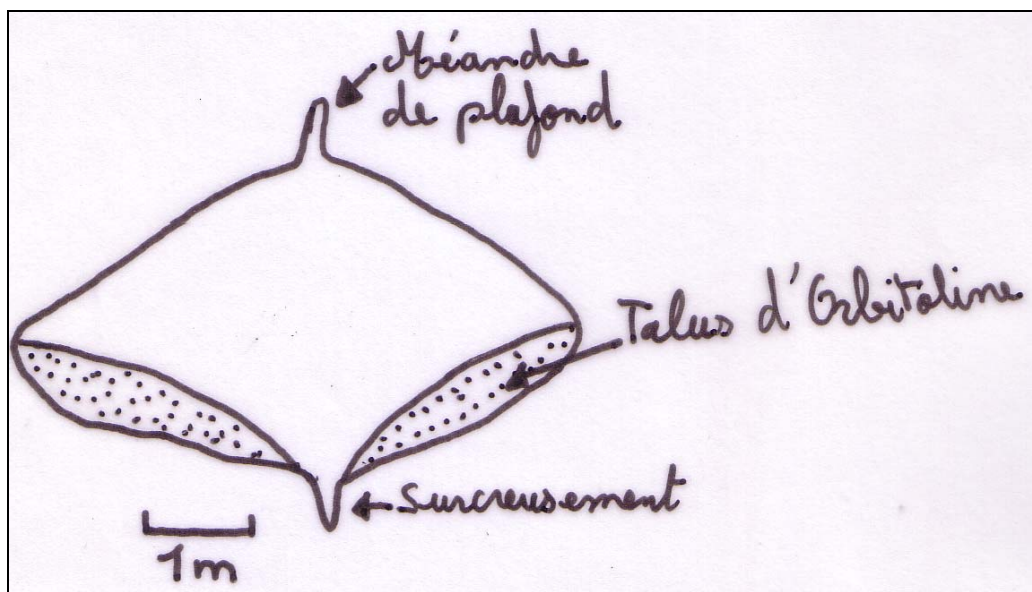 Méandre
de plafond
Talus d'Orbitoline
Surcreusement
1m